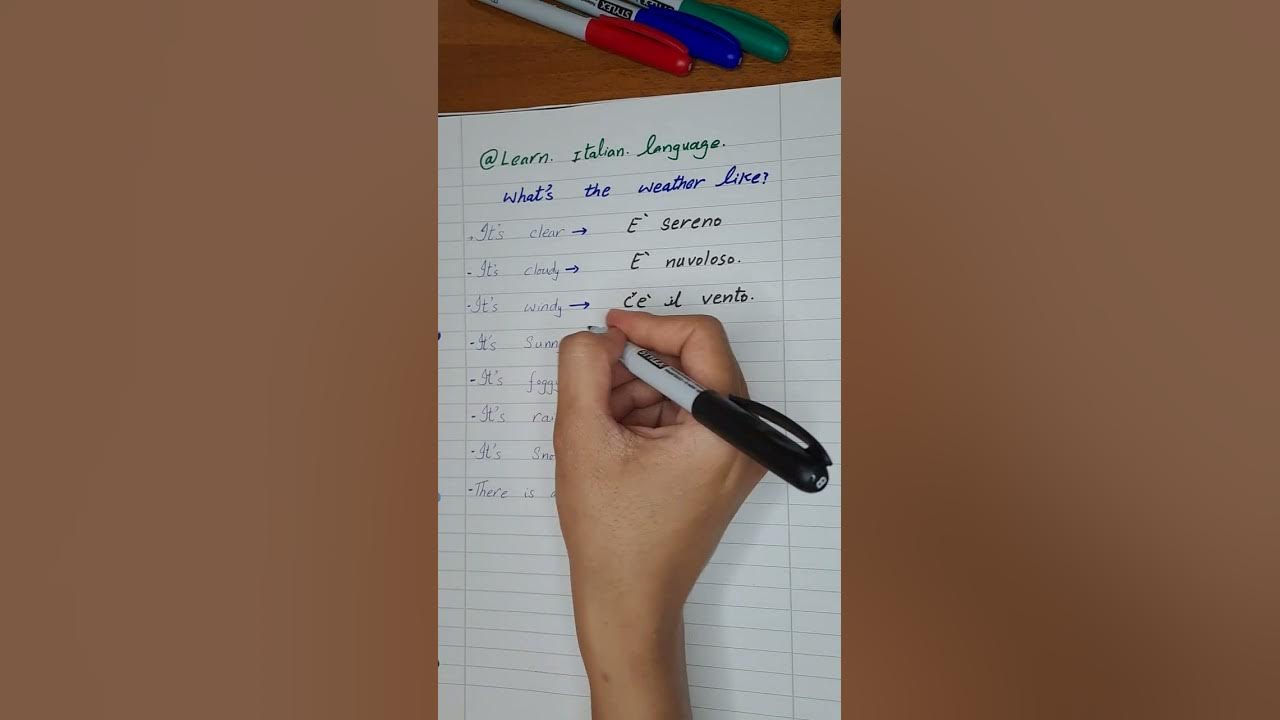 STYLEX
@Learn. Italian. language.
What's the weather like?
- It's clear → E` sereno
- It's cloudy → E` nuvoloso.
- It's windy → C'e` il vento.
- It's
- It's
- It's
- It's
- There is
STYLEX